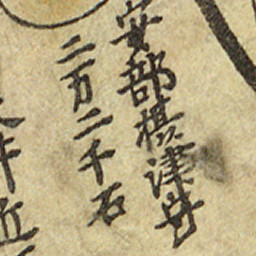 安部摂津守
二万二千石